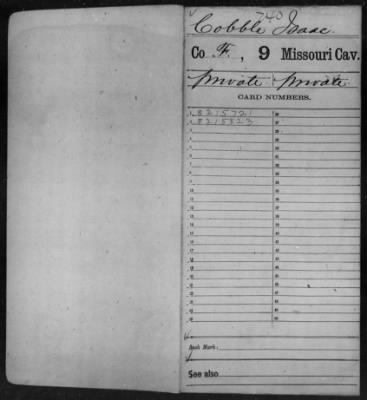 740
Cobble Isaac.
Co. F., 9 Missouri Cav.
Private Private
CARD NUMBERS.
1 8215721
2 8215823
Book Mark:
See also